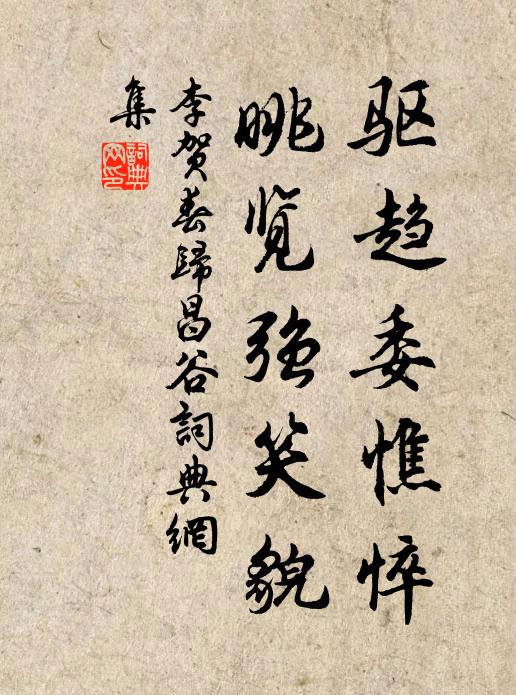 驱趋委憔悴
眺览强笑貌
李贺春歸昌谷詞典網
集
詞典
网印